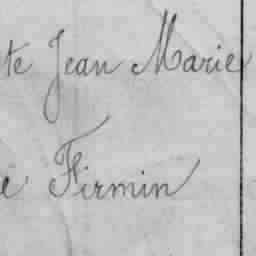 te Jean Marie
e Firmin